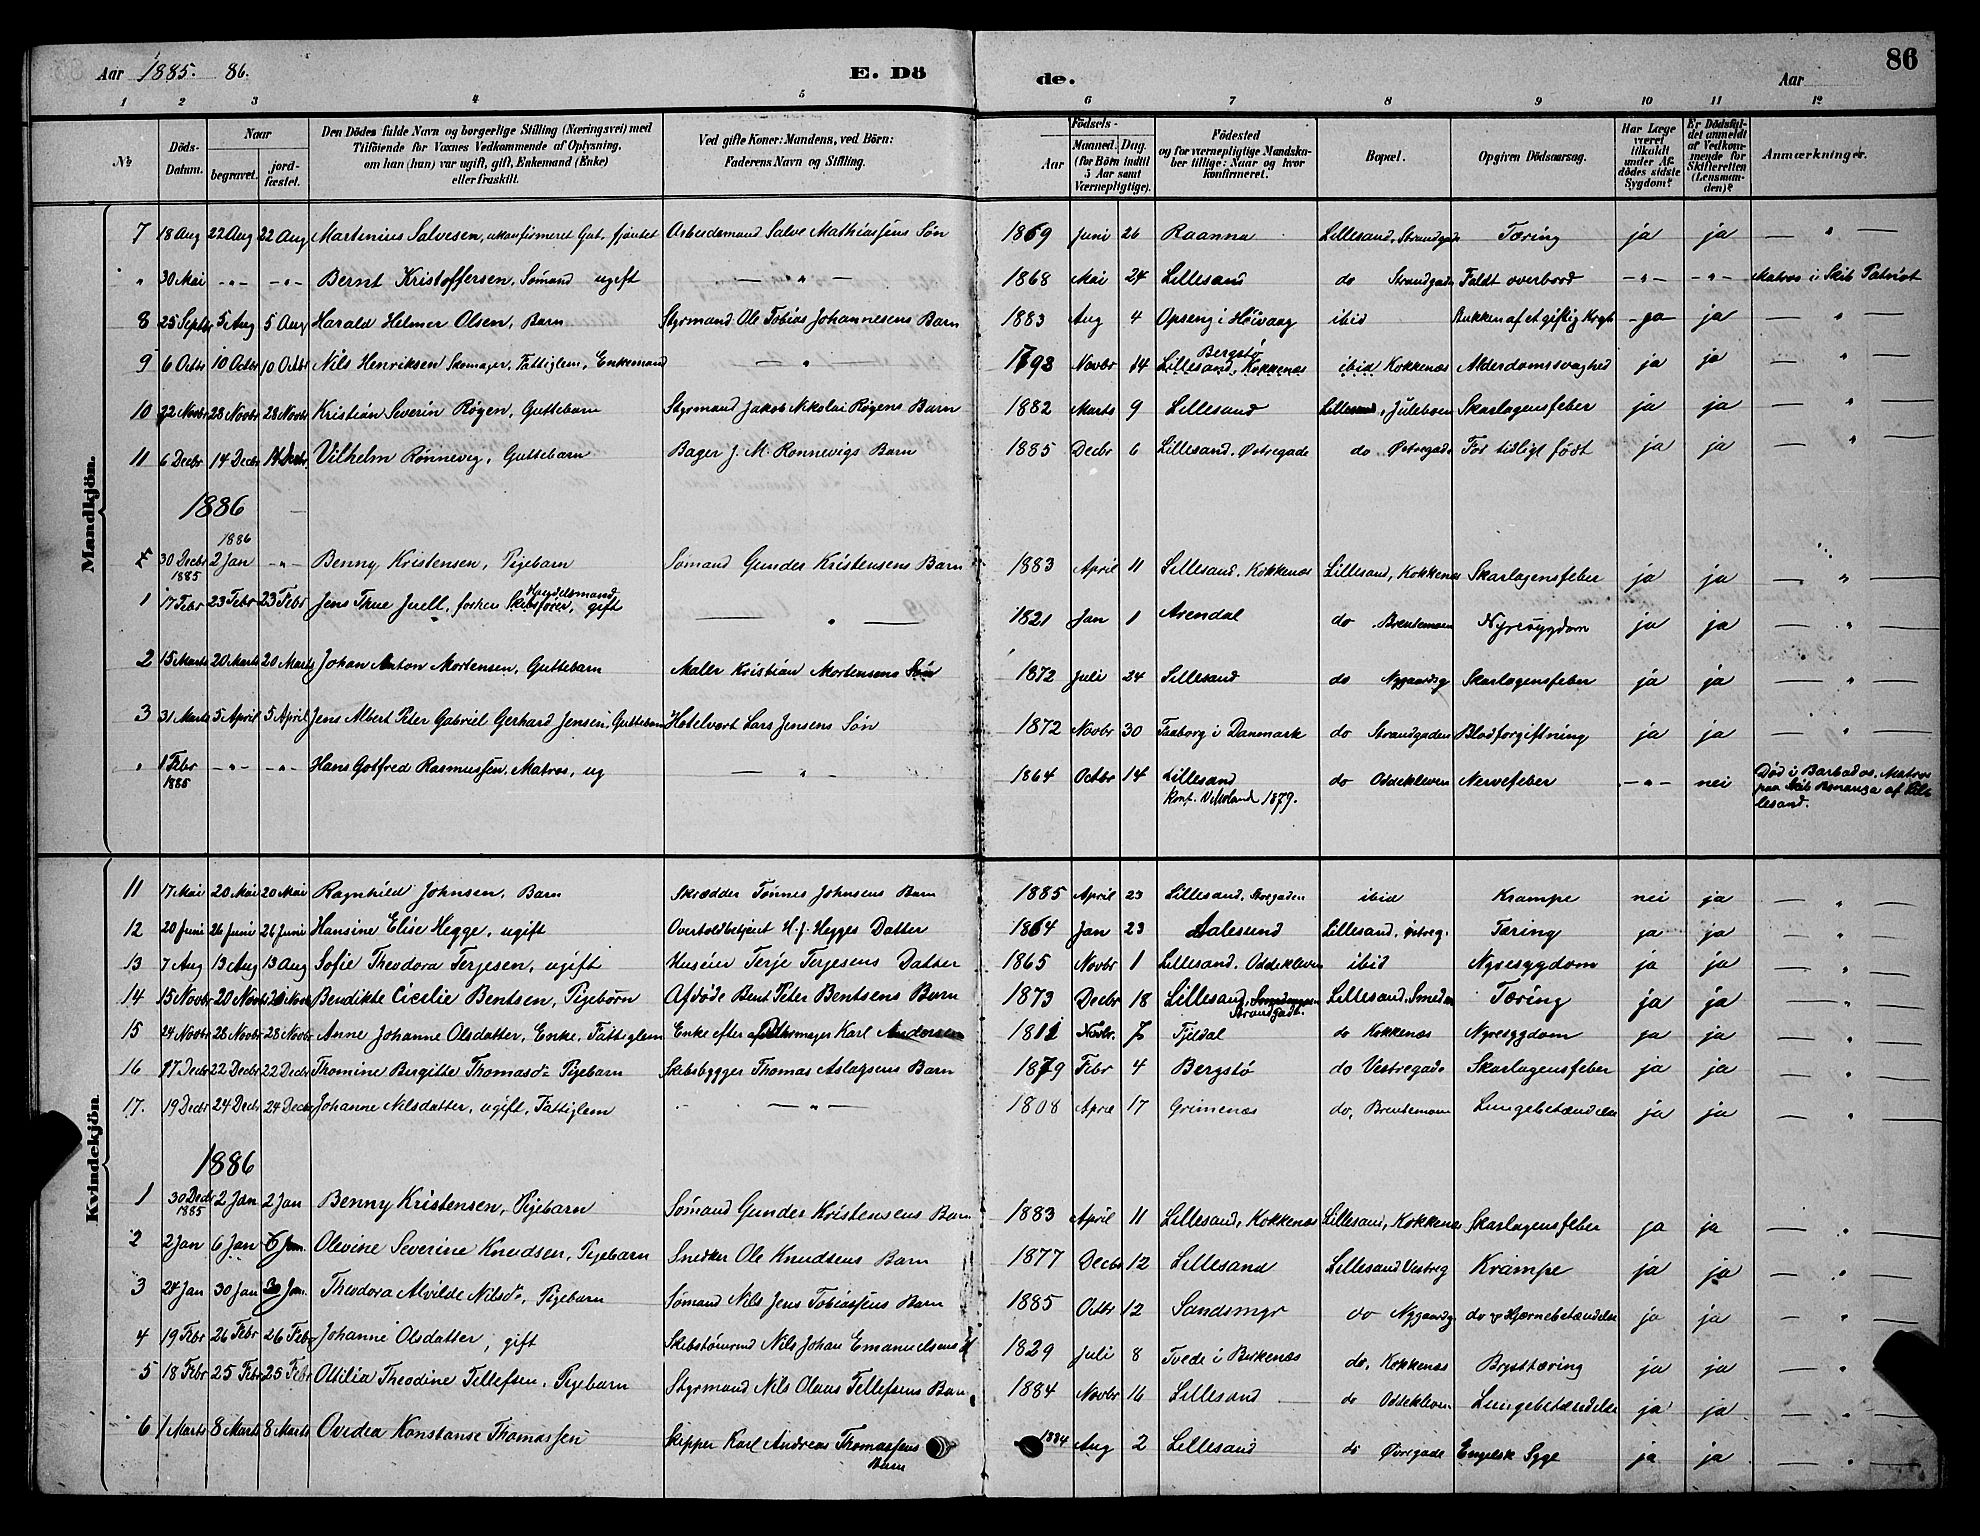 Aar 1885. 86. E. Dö de. Aar 86
1 2 3 4 5 6 7 8 9 10 11 12
No Döds-Datum. Naar begravet. jordfæstet. Den Dödes fulde Navn og borgerlige Stilling (Næringsvei) med Tilföiende for Voxnes Vedkommende af Oplysning, om han (hun) var ugift, gift, Enkemand (Enke) eller fraskilt. Ved gifte Koner: Mandens, ved Börn: Faderens Navn og Stilling. Födsels- Aar Maaned. Dag. (for Börn indtil 5 Aar samt Værnepligtige). Födested og for værnepligtige Mandskaber tillige: Naar og hvor konfirmeret. Bopæl. Opgiven Dödsaarsag. Har Læge været tilkaldt under Afdödes sidste Sygdom? Er Dödsfaldet anmeldt af Vedkommende for Skifteretten (Lensmanden)? Anmærkninger.
Mandkjön.
7 18 Aug 22 Aug 22 Aug Martinius Salvesen, ukonfirmeret Gut, Arbeidsmand Salve Mathiassens Søn 1869 Juni 26 Raanna Lillesand, Strandgade Tæring ja ja — " —
" 30 Mai -"- -"- Bernt Kristoffersen, Sømand ugift — " — 1868 Mai 24 Lillesand do Strandgaden Faldt overbord -"- -"- Matros i Skib Patriot
8 25 Septbr 5 Aug 5 Aug Harald Helmer Olsen, Barn Styrmand Ole Tobias Johannesens Barn 1883 Aug 4 Opseng i Höivaag ibid Bukken af et giftig Kryb - ja - ja — " —
9 6 Octbr 10 Octbr 10 Octbr Nils Henriksen Skomager, Fattiglem, Enkemand — " — 1793 Novbr 14 Bergstö Lillesand, Kokkenæs ibid Kokkenæs Alderdomssvaghed ja ja — " —
10 22 Novbr 28 Novbr 28 Novbr Kristian Severin Røgen, Guttebarn Styrmand Jakob Nikolai Røgens Barn 1882 Marts 9 Lillesand Lillesand, Juleboen Skarlagensfeber ja ja — " —
11 6 Decbr 14 Decbr 14 Decbr Vilhelm Rønnevig, Guttebarn Bager J. M. Ronnevigs Barn 1885 Decbr 6 Lillesand, Østregade do Østregade For tidligt født ja ja — " —
1886
1886
30 Decbr 1885 2 Jan -"- Benny Kristensen, Pigebarn Sømand Gunder Kristensens Barn 1883 April 11 Lillesand, Kokkenæs Lillesand, Kokkenæs Skarlagensfeber ja ja — " —
1 17 Febr 23 Febr 23 Febr Jens Thue Juell, forhen Skibsfører, Handelsmand gift — " — 1821 Jan 1 Arendal do Brentemoen Nyresygdom ja ja — " —
2 15 Marts 20 Marts 20 Marts Johan Anton Mortensen, Guttebarn Maler Kristian Mortensens Søn 1872 Juli 24 Lillesand do Nygaardsg Skarlagensfeber ja ja — " —
3 31 Marts 5 April 5 April Jens Albert Peter Gabriel Gerhard Jensen, Guttebarn Hotelvert Lars Jensens Søn 1872 Novbr 30 Faaborg i Danmark do Strandgaden Blodforgiftning ja ja — " —
" 1 Febr 1885 -"- -"- Hans Gotfred Rasmussen, Matros, ug — " — 1864 Octbr 14 Lillesand Konf. V. Moland 1879. do Oddekleven Nervefeber -"- nei Død i Barbados. Matros paa Skib Bonanza af Lillesand.
Kvindekjön.
11 17 Mai 20 Mai 20 Mai Ragnhild Johnsen, Barn Skrædder Tønnes Johnsens Barn 1885 April 23 Lillesand, Storgaden ibid Krampe nei ja — " —
12 20 Juni 26 Juni 26 Juni Hansine Elise Hegge, ugift Overtoldbetjent H. J. Hegges Datter 1864 Jan 23 Aalesund Lillesand, Østreg. Tæring ja ja — " —
13 7 Aug 13 Aug 13 Aug Sofie Theodora Terjesen, ugift Huseier Terje Terjesens Datter 1865 Novbr 1 Lillesand, Oddekleven ibid Nyresygdom ja ja — " —
14 15 Novbr 20 Novbr 20 Novbr Bendikte Cicilie Bentsen, Pigebørn Afdøde Bent Peter Bentsens Barn 1873 Decbr 18 Lillesand, Strandgade. Lillesand, Smeden Tæring ja ja — " —
15 24 Novbr 28 Novbr 28 Novbr Anne Johanne Olsdatter, Enke, Fattiglem Enke efter Karl Andersen 1811 Novbr. 7 Fjeldal do Kokkenæs Nyresygdom ja ja — " —
16 17 Decbr 22 Decbr 22 Decbr Thomine Bergitte Thomasd: Pigebarn Skibsbygger Thomas Aslagsens Barn 1879 Febr 4 Bergstö do Vestregade Skarlagensfeber ja ja — " —
17. 19 Decbr 24 Decbr 24 Decbr Johanne Nilsdatter, ugift, Fattiglem — " — 1808 April 17 Grimenæs do, Brentemoen Lungebetændelse ja ja — " —
1886
1 30 Decbr 1885 2 Jan 2 Jan Benny Kristensen, Pigebarn Sømand Gunder Kristensens Barn 1883 April 11 Lillesand, Kokkenæs Lillesand, Kokkenæs Skarlagensfeber ja ja — " —
2 2 Jan 6 Jan 6 Jan Olevine Severine Knudsen, Pigebarn Snedker Ole Knudsens Barn 1877 Decbr 12 Lillesand Lillesand Vestreg Krampe ja ja — " —
3 24 Jan 30 Jan 30 Jan. Theodora Alvilde Nilsd:, Pigebarn Sømand Nils Jens Tobiassens Barn 1885 Octbr 12 Sandsmyr do Nygaardsg do og Hjernebetændelse ja ja — " —
4 19 Febr 26 Febr 26 Febr Johanne Olsdatter, gift Skibstømrmd Nils Johan Emanuelsens H 1829 Juli 8 Tvede i Birkenæs do, Kokkenæs Brysttæring ja ja — " —
5 18 Febr 25 Febr 25 Febr Otilia Theodine Tellefsen, Pigebarn Styrmand Nils Olaus Tellefsens Barn 1884 Novbr 16 Lillesand do Oddekleven Lungebetændelse ja ja — " —
6 1 Marts 8 Marts 8 Marts Ovidia Konstanse Thomassen Skipper Karl Andreas Thomassens Barn 1884 Aug 2 Lillesand do Øvregade Engelsk Syge ja ja — " —